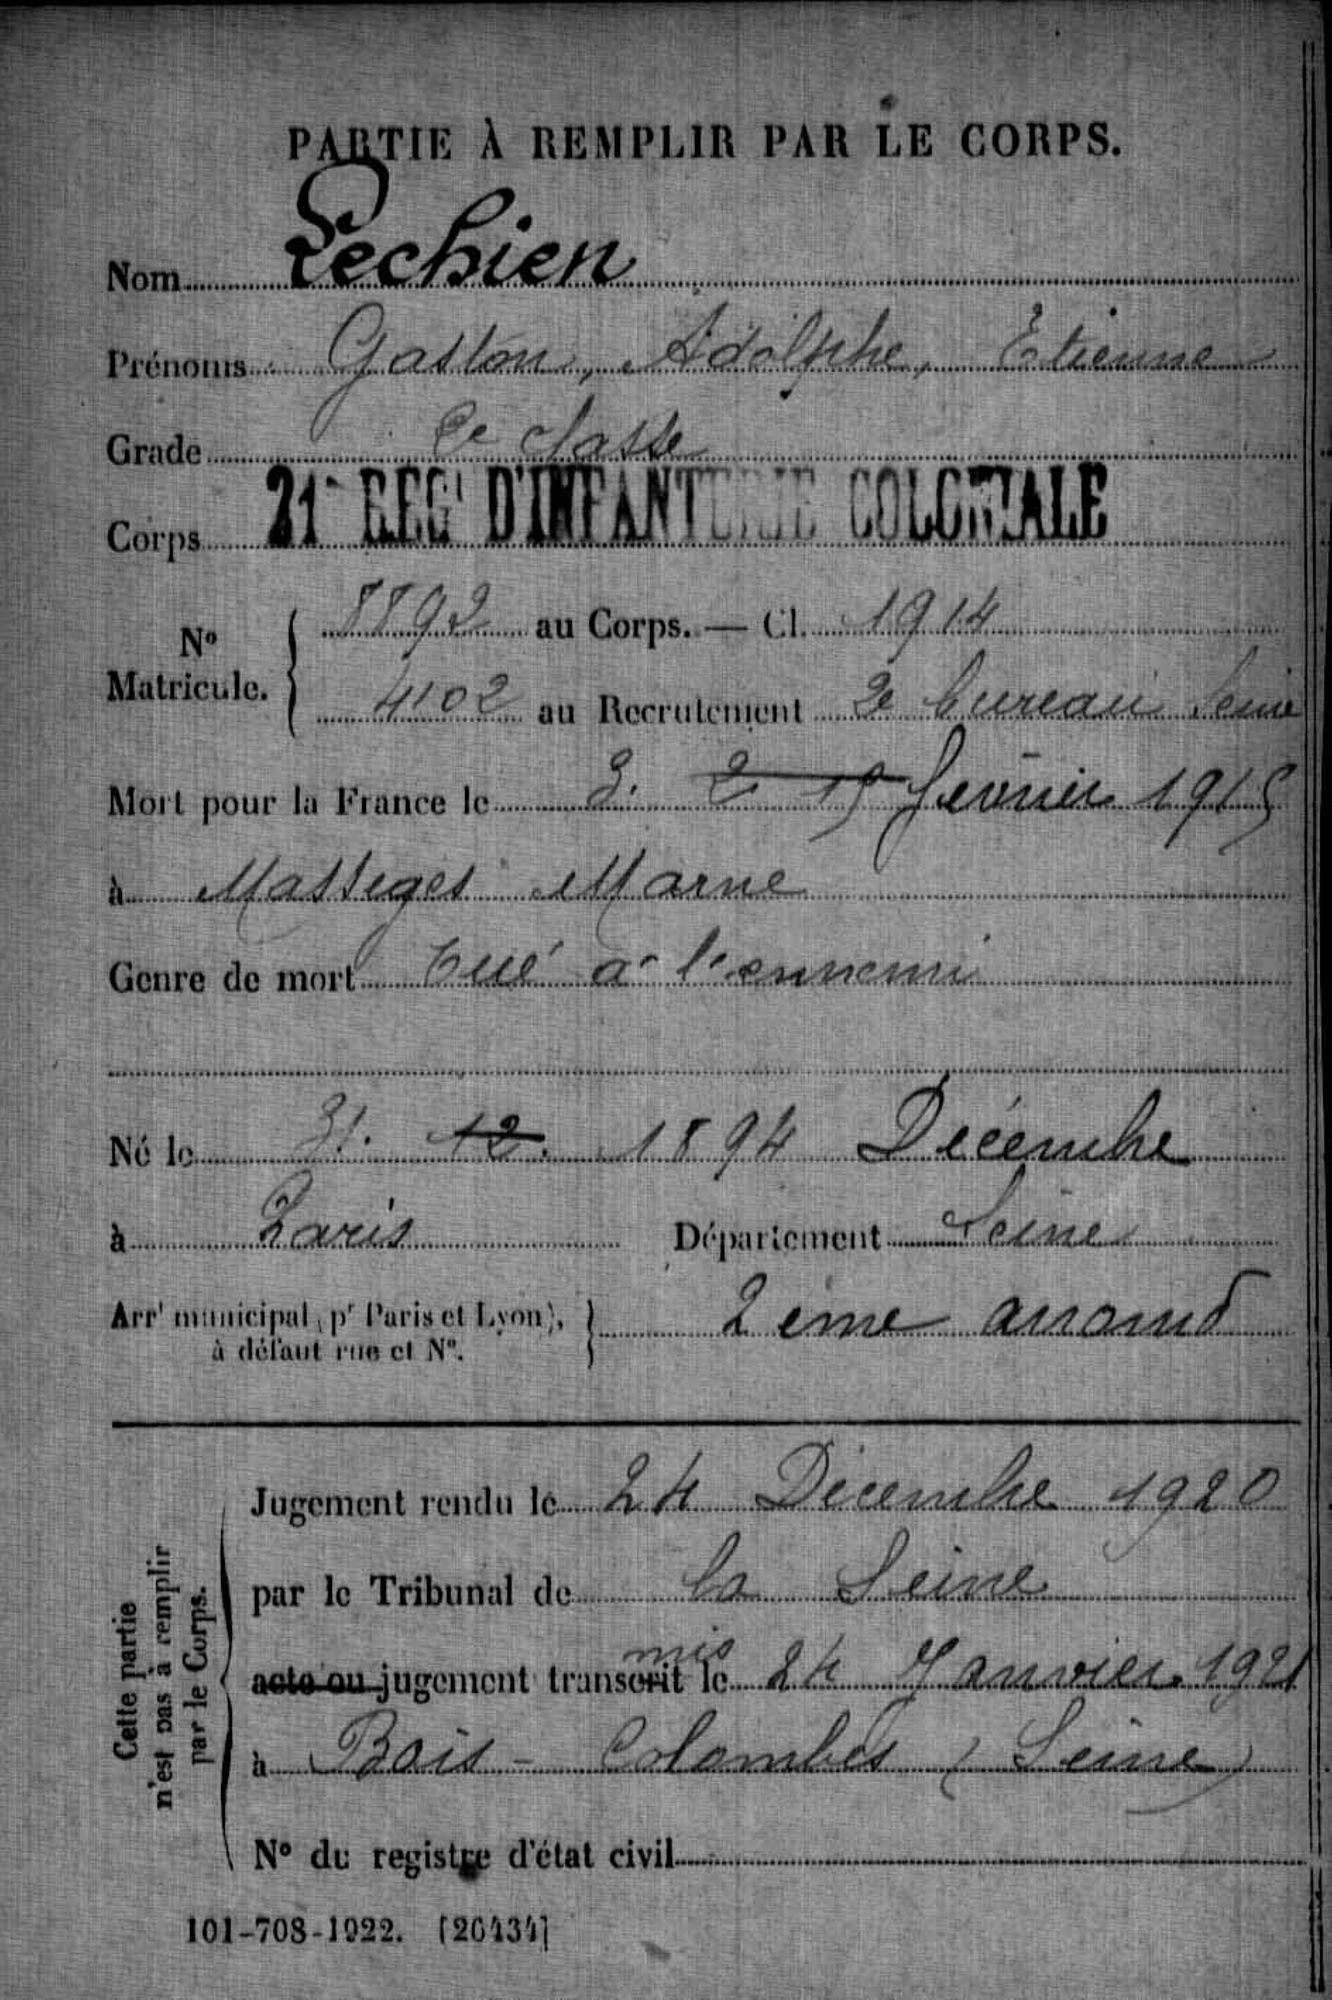 PARTIE À REMPLIR PAR LE CORPS.
Nom Lechien
Prénoms Gaston, Adolphe, Etienne
Grade 2e classe
Corps 21e REGt D'INFANTERIE COLONIALE
No Matricule. 8892 au Corps. — Cl. 1914
4102 au Recrutement 2e bureau Seine
Mort pour la France le 3. 2 15 février 1915
à Massiges Marne
Genre de mort tué à l'ennemi
Né le 31. 12. 1894 Décembre
à Paris Département Seine
Arrt municipal (pr Paris et Lyon), à défaut rue et No. 2ème arrond
Cette partie n'est pas à remplir par le Corps.
Jugement rendu le 24 Décembre 1920
par le Tribunal de la Seine
mis
acte ou jugement transcrit le 24 Janvier 1921
à Bois-Colombes (Seine)
No du registre d'état civil
101-708-1922. [26434]